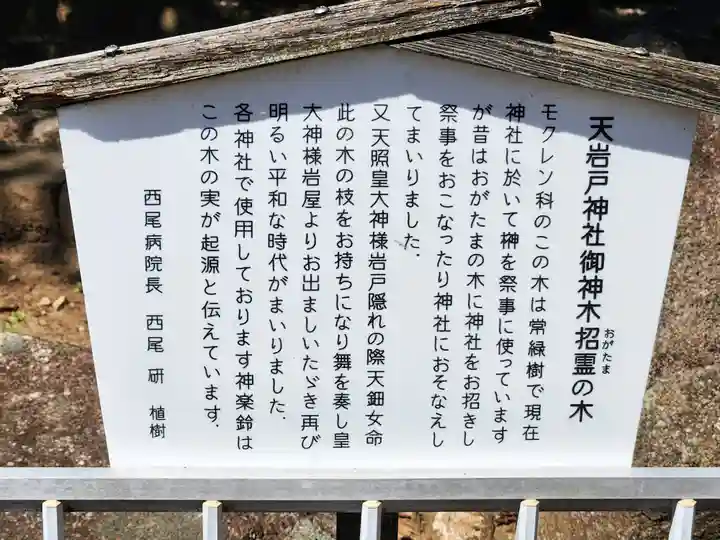 天岩戸神社御神木招霊の木
おがたま
モクレン科のこの木は常緑樹で現在
神社に於いて榊を祭事に使っています
が昔はおがたまの木に神社をお招きし
祭事をおこなったり神社におそなえし
てまいりました.
又天照皇大神様岩戸隠れの際天鈿女命
此の木の枝をお持ちになり舞を奏し皇
大神様岩屋よりお出ましいたゞき再び
明るい平和な時代がまいりました.
各神社で使用しております神楽鈴は
この木の実が起源と伝えています.
西尾病院長 西尾 研 植樹